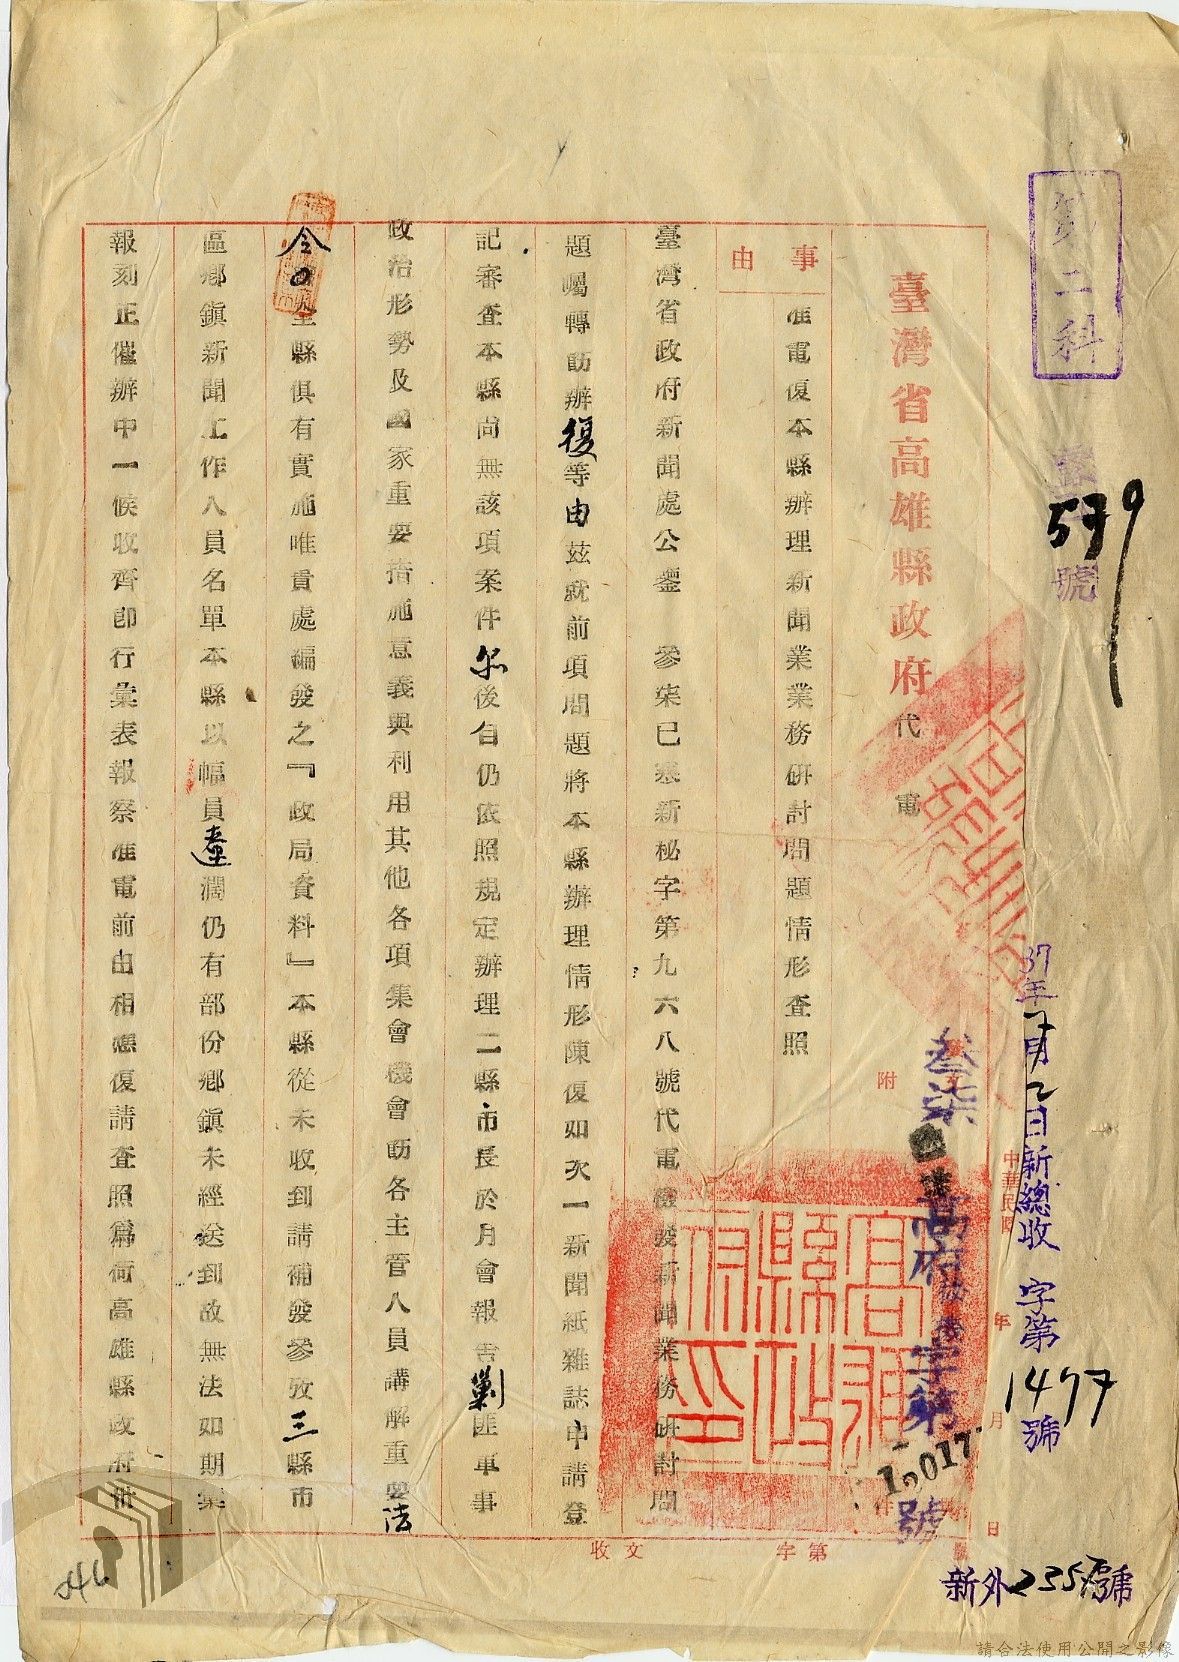 第二科
號
539
37年7月2日新總收 字第1477號
新外235號
臺灣省高雄縣政府代電
附
中華民國 年 月 日
叁柒
高府 字第
15017
號
事由
准電復本縣辦理新聞業業務研討問題情形查照
臺灣省政府新聞處公鑒 參柒巳寒新秘字第九六八號代電檢發新聞業務研討問
題囑轉飭辦復等由茲就前項問題將本縣辦理情形陳復如次一新聞紙雜誌申請登
記審查本縣尚無該項案件尓後自仍依照規定辦理二縣市長於月會報告剿匪軍事
政治形勢及國家重要措施意義與利用其他各項集會機會飭各主管人員講解重要法
令 縣俱有實施唯貴處編發之『政局資料』本縣從未收到請補發參攷三縣市
區鄉鎮新聞工作人員名單本縣以幅員遼濶仍有部份鄉鎮未經送到故無法如期彙
報刻正催辦中一候收齊即行彙表報察准電前由相應復請查照為荷高雄縣政府
收文 字第 號
246
高雄縣政府印
請合法使用公開之影像